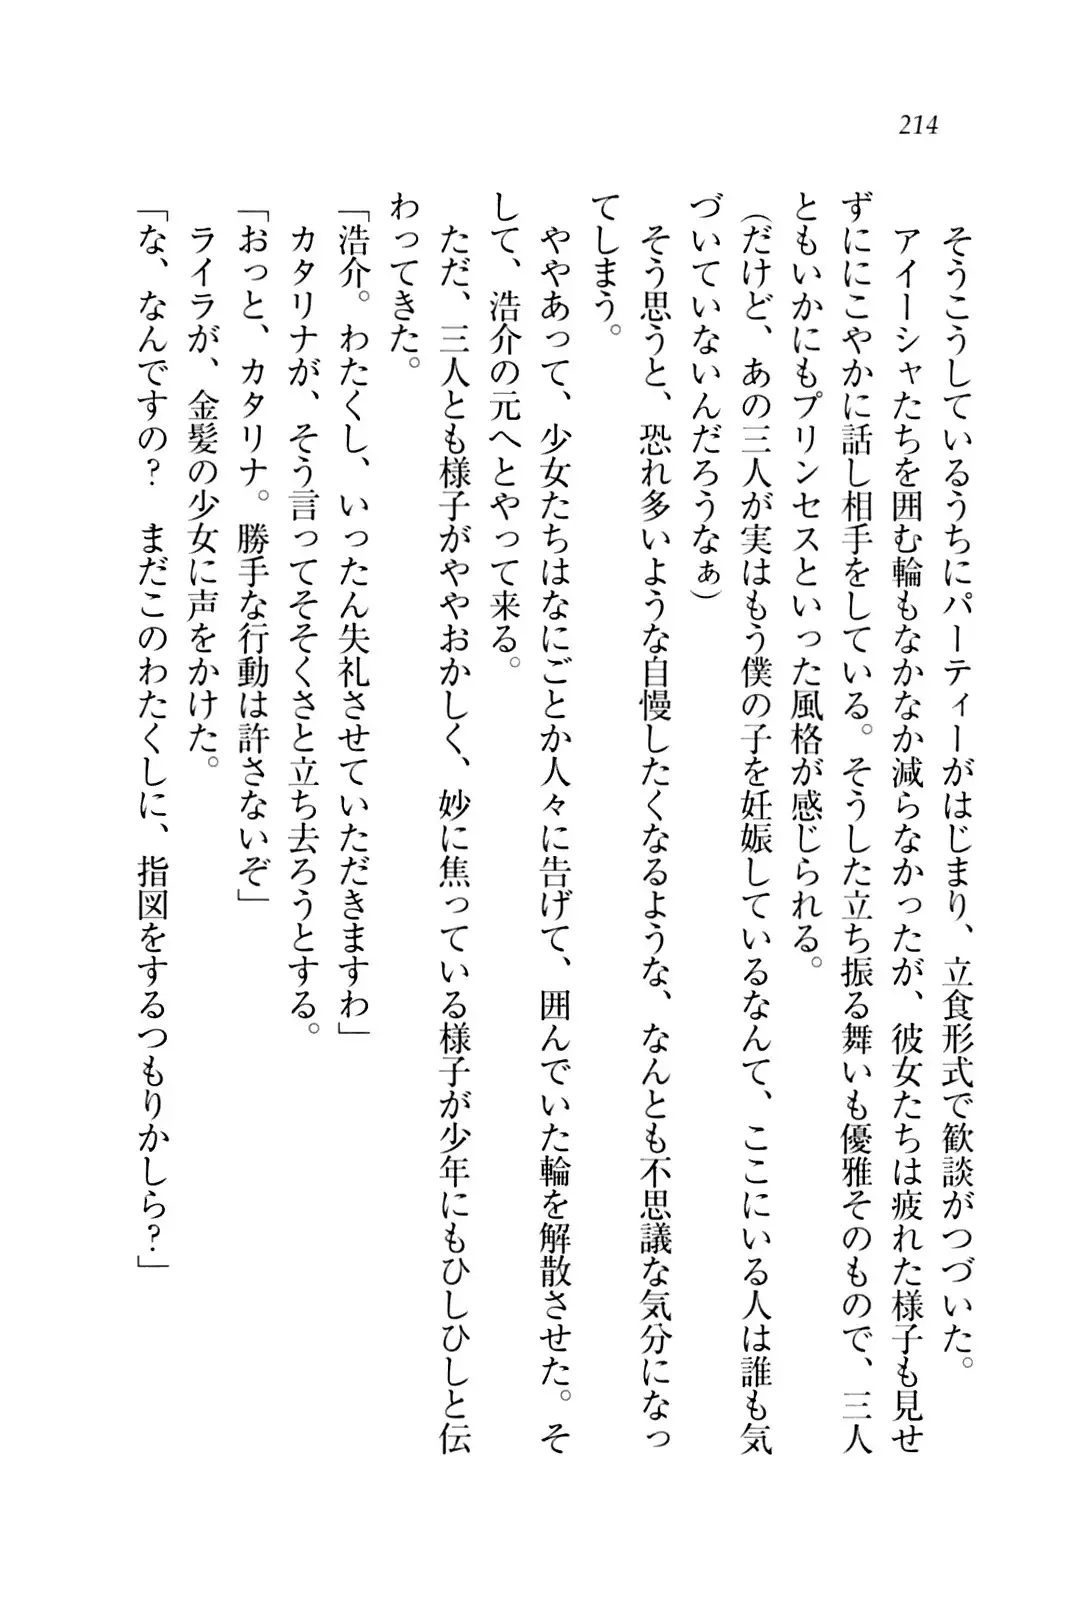 214
　そうこうしているうちにパーティーがはじまり、立食形式で歓談がつづいた。
　アイーシャたちを囲む輪もなかなか減らなかったが、彼女たちは疲れた様子も見せ
ずににこやかに話し相手をしている。そうした立ち振る舞いも優雅そのもので、三人
ともいかにもプリンセスといった風格が感じられる。
（だけど、あの三人が実はもう僕の子を妊娠しているなんて、ここにいる人は誰も気
づいていないんだろうなぁ）
　そう思うと、恐れ多いような自慢したくなるような、なんとも不思議な気分になっ
てしまう。
　ややあって、少女たちはなにごとか人々に告げて、囲んでいた輪を解散させた。そ
して、浩介の元へとやって来る。
　ただ、三人とも様子がややおかしく、妙に焦っている様子が少年にもひしひしと伝
わってきた。
「浩介。わたくし、いったん失礼させていただきますわ」
　カタリナが、そう言ってそそくさと立ち去ろうとする。
「おっと、カタリナ。勝手な行動は許さないぞ」
　ライラが、金髪の少女に声をかけた。
「な、なんですの？　まだこのわたくしに、指図をするつもりかしら？」